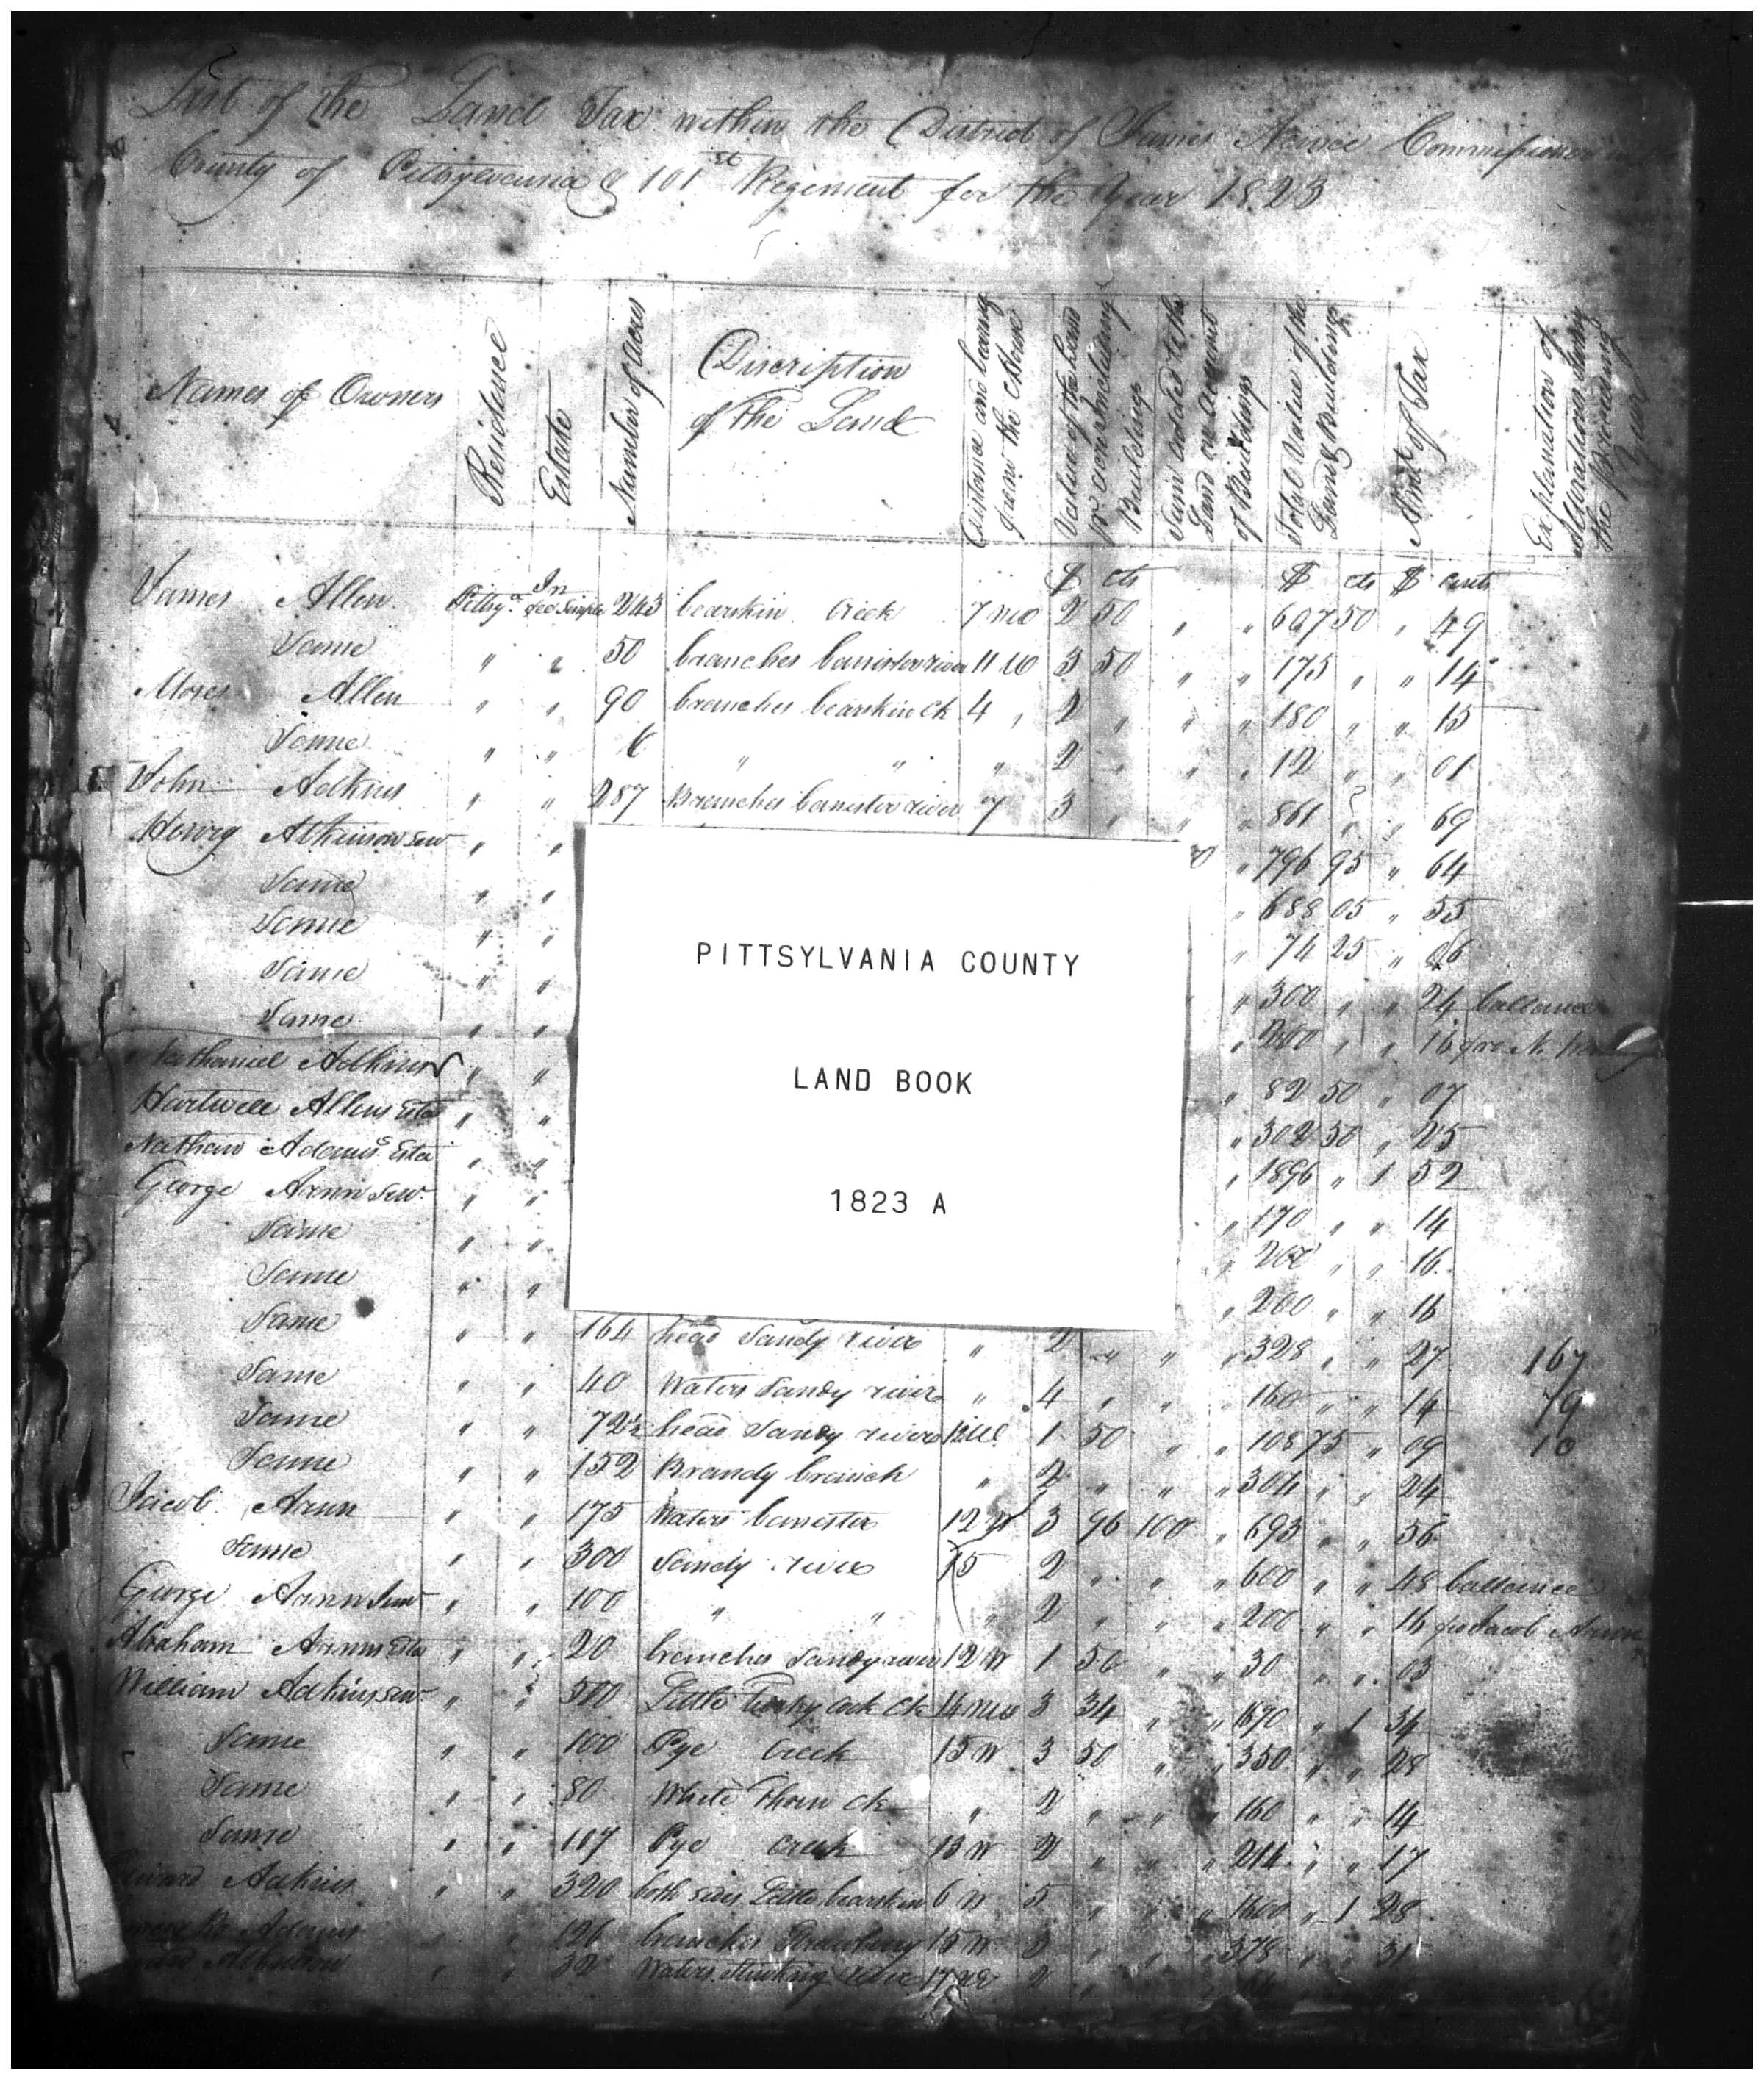 List of the Land Tax within the District of James Nance Commissioner in the
County of Pittsylvania & 101st Regiment for the Year 1823
Names of Owners Residence Estate Number of Acres Discription of the Land Distance and bearing from the CHouse Value of the Land pr acre including Buildings Sum added to the Land on account of Buildings Total Value of the Land & Buildings Amt of Tax Explanation of Alterations during the Preceding Year
$ cts $ cts $ cents
James Allen Pittsya In fee simple 243 bearskin Creek 7 NW 2 50 " " 607 50 " 49
Same " " 50 branches banister river 11 W 3 50 " " 175 " " 14
Moses Allen " " 90 branches bearskin Ck 4 " 2 " " " 180 " " 15
Same " " 6 " " " 2 " " " 12 " " 01
John Adkins " " 287 Branches banister river 7 3 " " " 861 " " 69
Henry Atkinson Sen " " " 796 95 " 64
Same " " " 688 05 " 55
Same " " " 74 25 " 06
Same " " " 300 " " 24 ballance
Same " " " 200 " " 16 fro N.
Nathaniel Adkins " " " 82 50 " 07
Hartwell Allens Esta " " " 302 50 " 25
Nathan Adams Esta " " " 1896 " 1 52
George Arnn Sen. " " " 170 " " 14
Same " " " 200 " " 16
Same " " " 200 " " 16
Same " " 164 head Sandy river " 2 " " " 328 " " 27 167
Same " " 40 Waters Sandy river " 4 " " " 160 " " 14 79
Same " " 72½ head Sandy river 12 W. 1 50 " " 108 75 " 09 10
Same " " 152 Brandy branch " 2 " " " 304 " " 24
Jacob Arnn " " 175 Waters banester 12 W 3 96 100 " 693 " " 56
Same " " 300 Sandy river 15 2 " " " 600 " " 48 ballance
George Arnn Sen " " 100 " " " 2 " " " 200 " " 16 fro Jacob Arnn
Abraham Arnns Esta " " 20 branches Sandy river 12 W 1 50 " " 30 " " 03
William Adkins sen. " " 500 Little Turky cock Ck 14 NW 3 34 " " 1670 " 1 34
Same " " 100 Pye Creek 15 W 3 50 " " 350 " " 28
Same " " 80 White Thorn Ck " 2 " " " 160 " " 14
Same " " 107 Pye Creek 13 W 2 " " " 214 " " 17
Adkins " " 320 both sides Little bearskin 6 W 5 " " " 1600 " 1 28
Adams " " 126 branches Strawberry 15 W 3 " " " 378 " " 31
" " 32 Waters Stinking river 17 NE 2 " "
PITTSYLVANIA COUNTY
LAND BOOK
1823 A